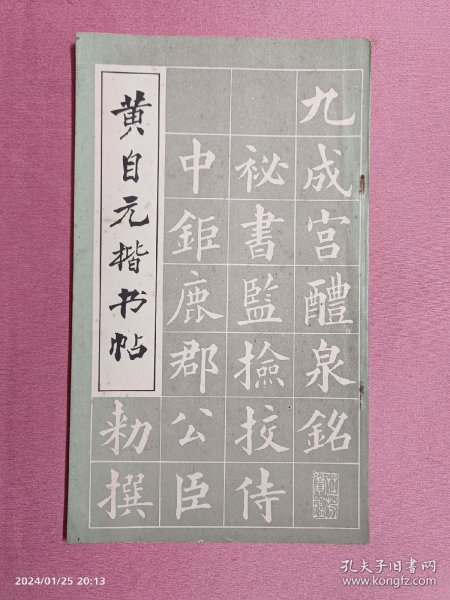 黄自元楷书帖
九成宫醴泉銘
祕書監撿挍侍
中鉅鹿郡公臣
勅撰
2024/01/25 20:13
孔夫子旧书网
www.kongfz.com